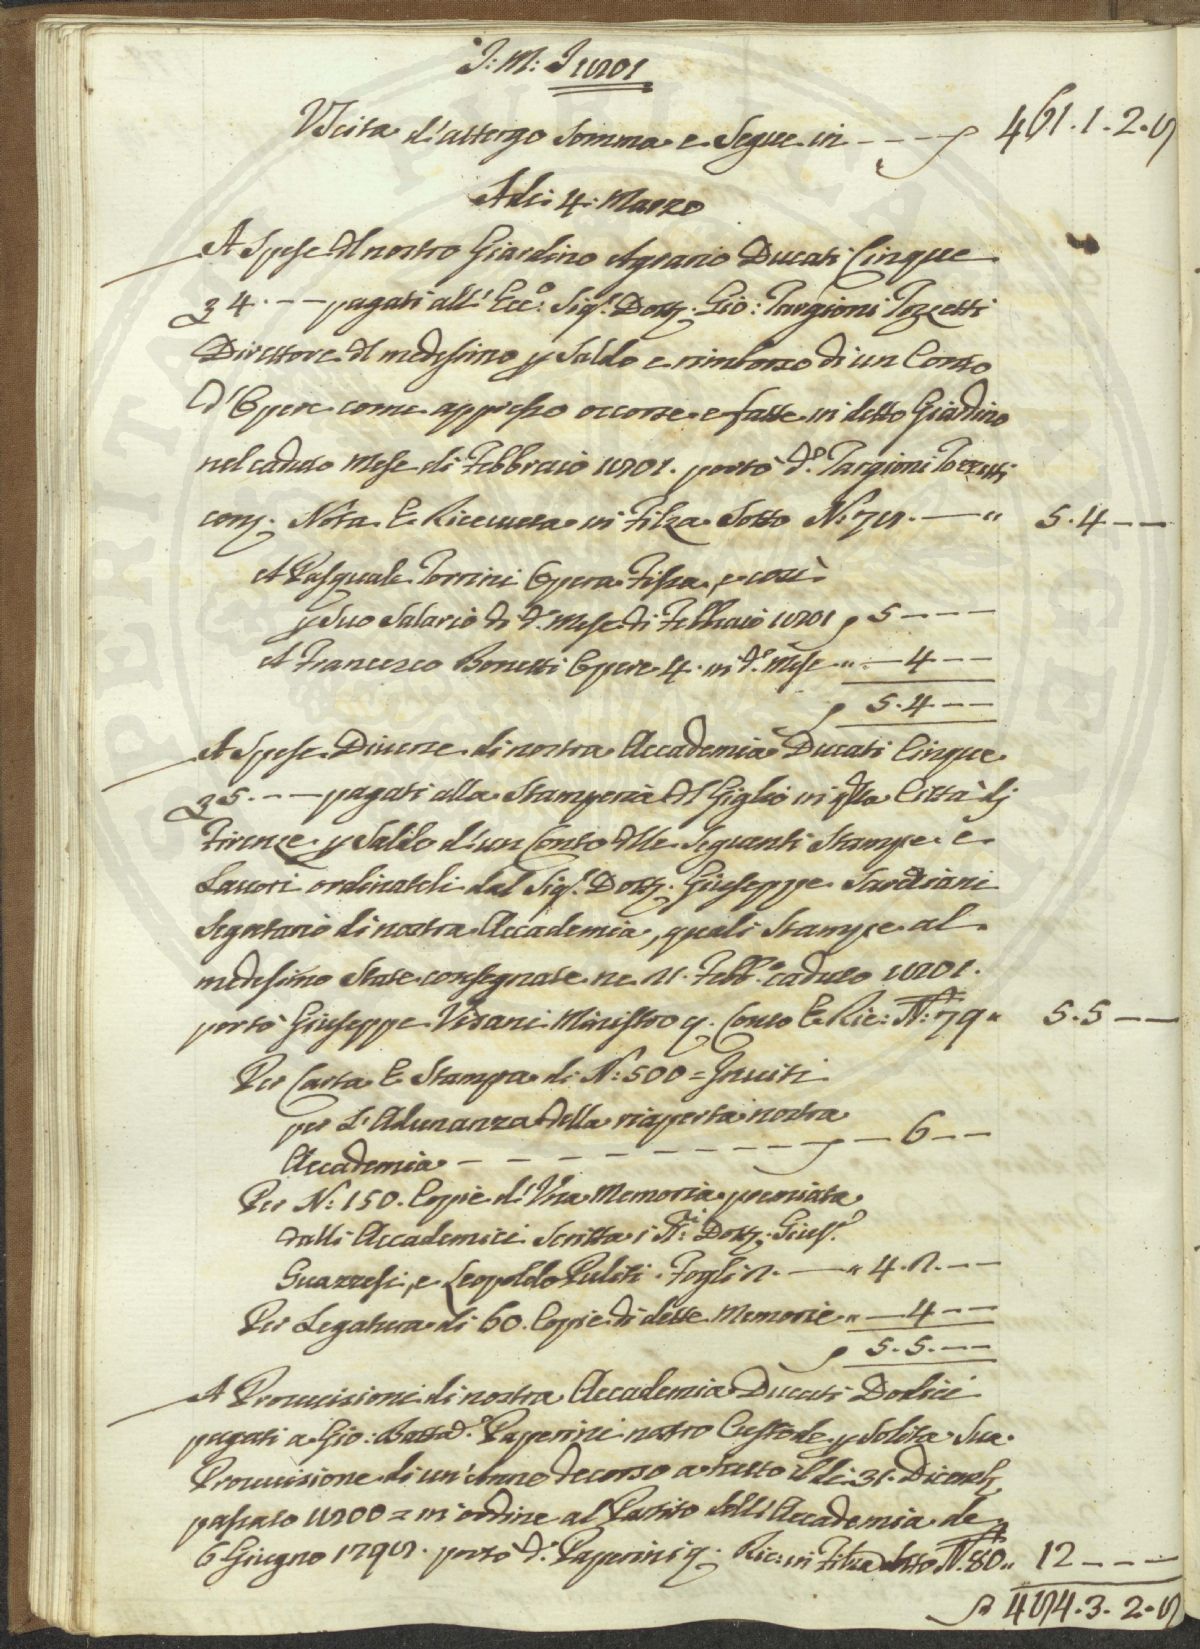 J: M: J 1801
Vscita d'attergo Somma e Segue in - - - - 461.1.2.8
Adi: 4: Marzo
A Spese del nostro Giardino Agrario Ducati Cinque
ʒ 4. - - pagati all' Ecc.o Sig.r Dott. Gio: Targioni Tozzetti
Direttore del medesimo p Saldo e rimborso di un Conto
d'Opere come appiesso occorse e fatte in detto Giardino
nel caduto Mese di Febbraio 1801. portò d.o Targioni Tozzetti
con: Nota E Riceuuta in Filza Sotto N: 78. — " 5.4 - -
A Pasquale Torrini Opera Fissa, e così
p Suo Salario di d.o mese di Febbraio 1801 5 - - -
A Francesco Bonetti Opere 4. in d.o Mese " — 4 - -
5.4 - -
A Spese Diuerse di nostra Accademia Ducati Cinque
ʒ 5. - - pagati alla Stamperia del Giglio in q.sta Città di
Firenze p Saldo d'un Conto delle Seguenti Stampe e
Lauori ordinatoli dal Sig.r Dott. Giuseppe Sarchiani
Segretario di nostra Accademia, quali Stampe al
medesimo State consegnate ne 21. Febb.o caduto 1801.
portò Giuseppe Visani Ministro p. Conto E Ric: N: 79 " 5.5 - -
Per Carta E Stampa di N: 500 = Inuiti
per L'Adunanza della riaperta nostra
Accademia - - - - - - - - — 6 - -
Per N: 150. Copie d'Vna Memoria premiata
dalli Accademici Scritta i SS.ri Dott. Gius.e
Guazzesi, e Leopoldo Puliti Fogli 2. — " 4.2. - -
Per Legatura di 60. Copie di dette Memorie " — 4 - -
5.5. - -
A Prouuisioni di nostra Accademia Ducati Dodici
pagati a Gio: Batta d.o Paperini nostro Custode p Solita Sua
Prouuisione di un' Anno decorso a tutto il dì 31. Dicemb.
passato 1800 = in ordine al Partito dell'Accademia de
6 Giugno 1798. portò d.o Paperini p. Ric: in Filza Sotto N: 80 " 12 - - -
484.3.2.8